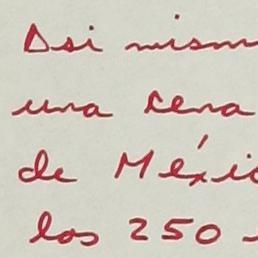 Asi mism
una cena
de Méxic
los 250